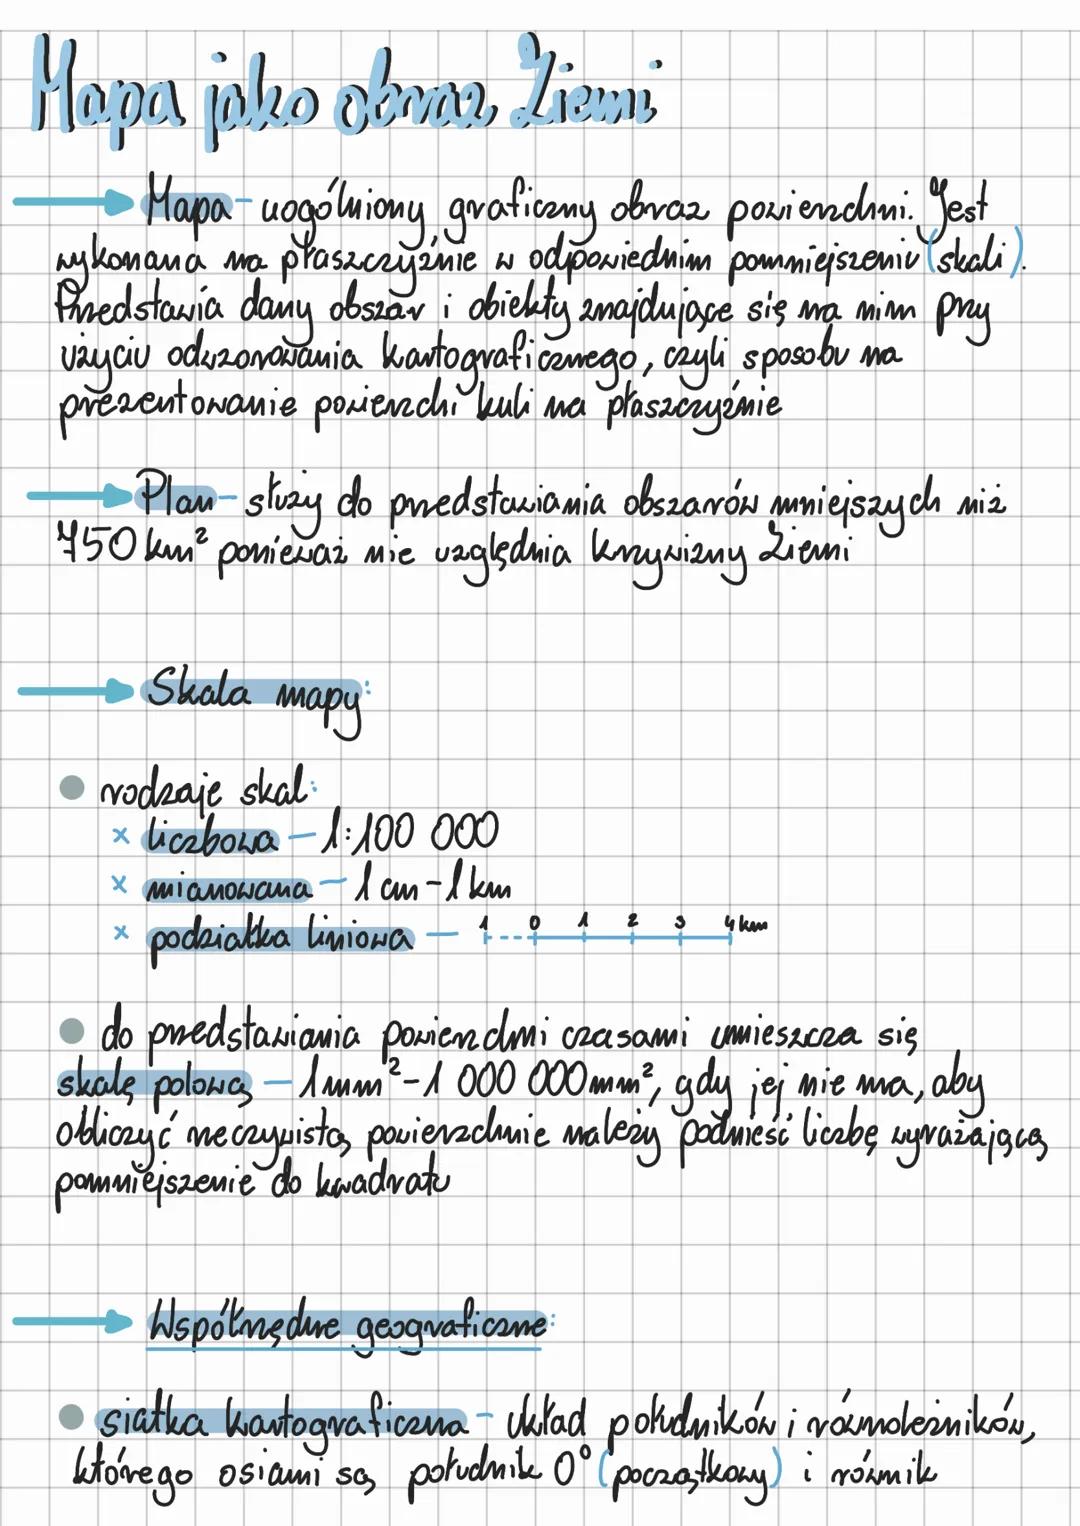 Mapa jako obraz Ziemi
Mapa - uogólniony graficzny obraz powierzchni. Jest
wykonana na płaszczyźnie w odpowiednim pomniejszeniu (skali).
Przedstawia dany obszar i obiekty znajdujące się na nim przy
użyciu odwzorowania kartograficznego, czyli sposobu na
prezentowanie powierzchi kuli na płaszczyźnie
Plan - służy do przedstawiania obszarów mniejszych niż
750 km² ponieważ nie uzględnia krzywizny Ziemi
Skala mapy:
rodzaje skal:
x liczbowa - 1:100 000
x mianowana - 1 cm - 1 km
x podziałka liniowa - 1 0 1 2 3 4 km
do przedstawiania powierzchni czasami umieszcza się
skalę polową - 1mm² - 1 000 000mm², gdy jej nie ma, aby
obliczyć rzeczywistą powierzchnie należy podnieść liczbę wyrażającą
pomniejszenie do kwadratu
Współrzędne geograficzne:
siatka kartograficzna - układ południków i równoleżników,
którego osiami są południk 0° (początkowy) i równik